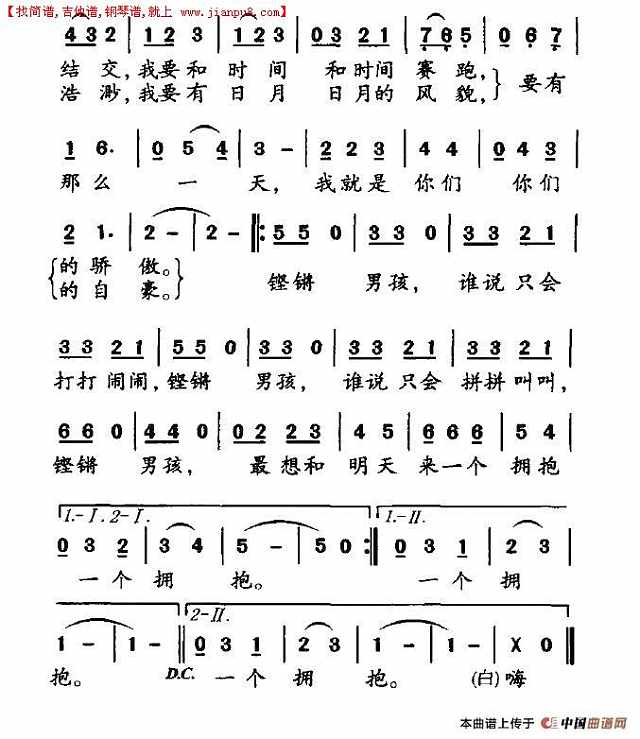 【找简谱,吉他谱,钢琴谱,就上 www.jianpu8.com】
4 3 2 | 1 2 3 | 1 2 3 | 0 2 1 | 7 6 5 | 0 6 7 |
结交,我要和时间 和时间赛跑,
浩渺,我要有日月 日月的风貌,} 要有
1 6. | 0 5 4 | 3 - | 2 2 3 | 4 4 | 0 4 3 |
那么 一天, 我就是你们 你们
2 1. | 2 - | 2 - |: 5 5 0 | 3 3 0 | 3 3 2 1 |
{的骄傲。 铿锵 男孩, 谁说只会
的自豪。}
3 3 2 1 | 5 5 0 | 3 3 0 | 3 3 2 1 | 3 3 2 1 |
打打闹闹,铿锵 男孩, 谁说只会拼拼叫叫,
6 6 0 | 4 4 0 | 0 2 2 3 | 4 5 | 6 6 6 | 5 4 |
铿锵 男孩, 最想和明天来一个拥抱
1.-I. 2-I. 1.-II.
0 3 2 | 3 4 | 5 - | 5 0 :| 0 3 1 | 2 3 |
一个拥 抱。 一个拥
2-II.
1 - | 1 - || 0 3 1 | 2 3 | 1 - | 1 - | X 0 ||
抱。 D.C. 一个拥 抱。 (白)嗨
本曲谱上传于 中国曲谱网